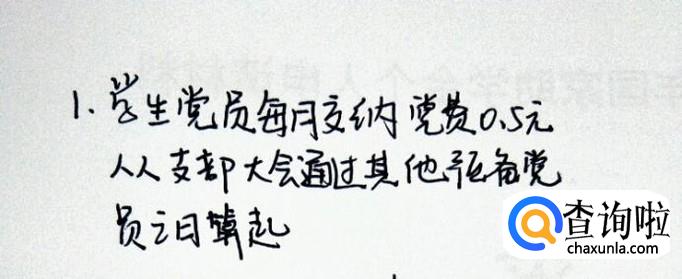 1.学生党员每月交纳党费0.5元
人人支部大会通过其他预备党
员之日算起
查询啦
chaxunla.com